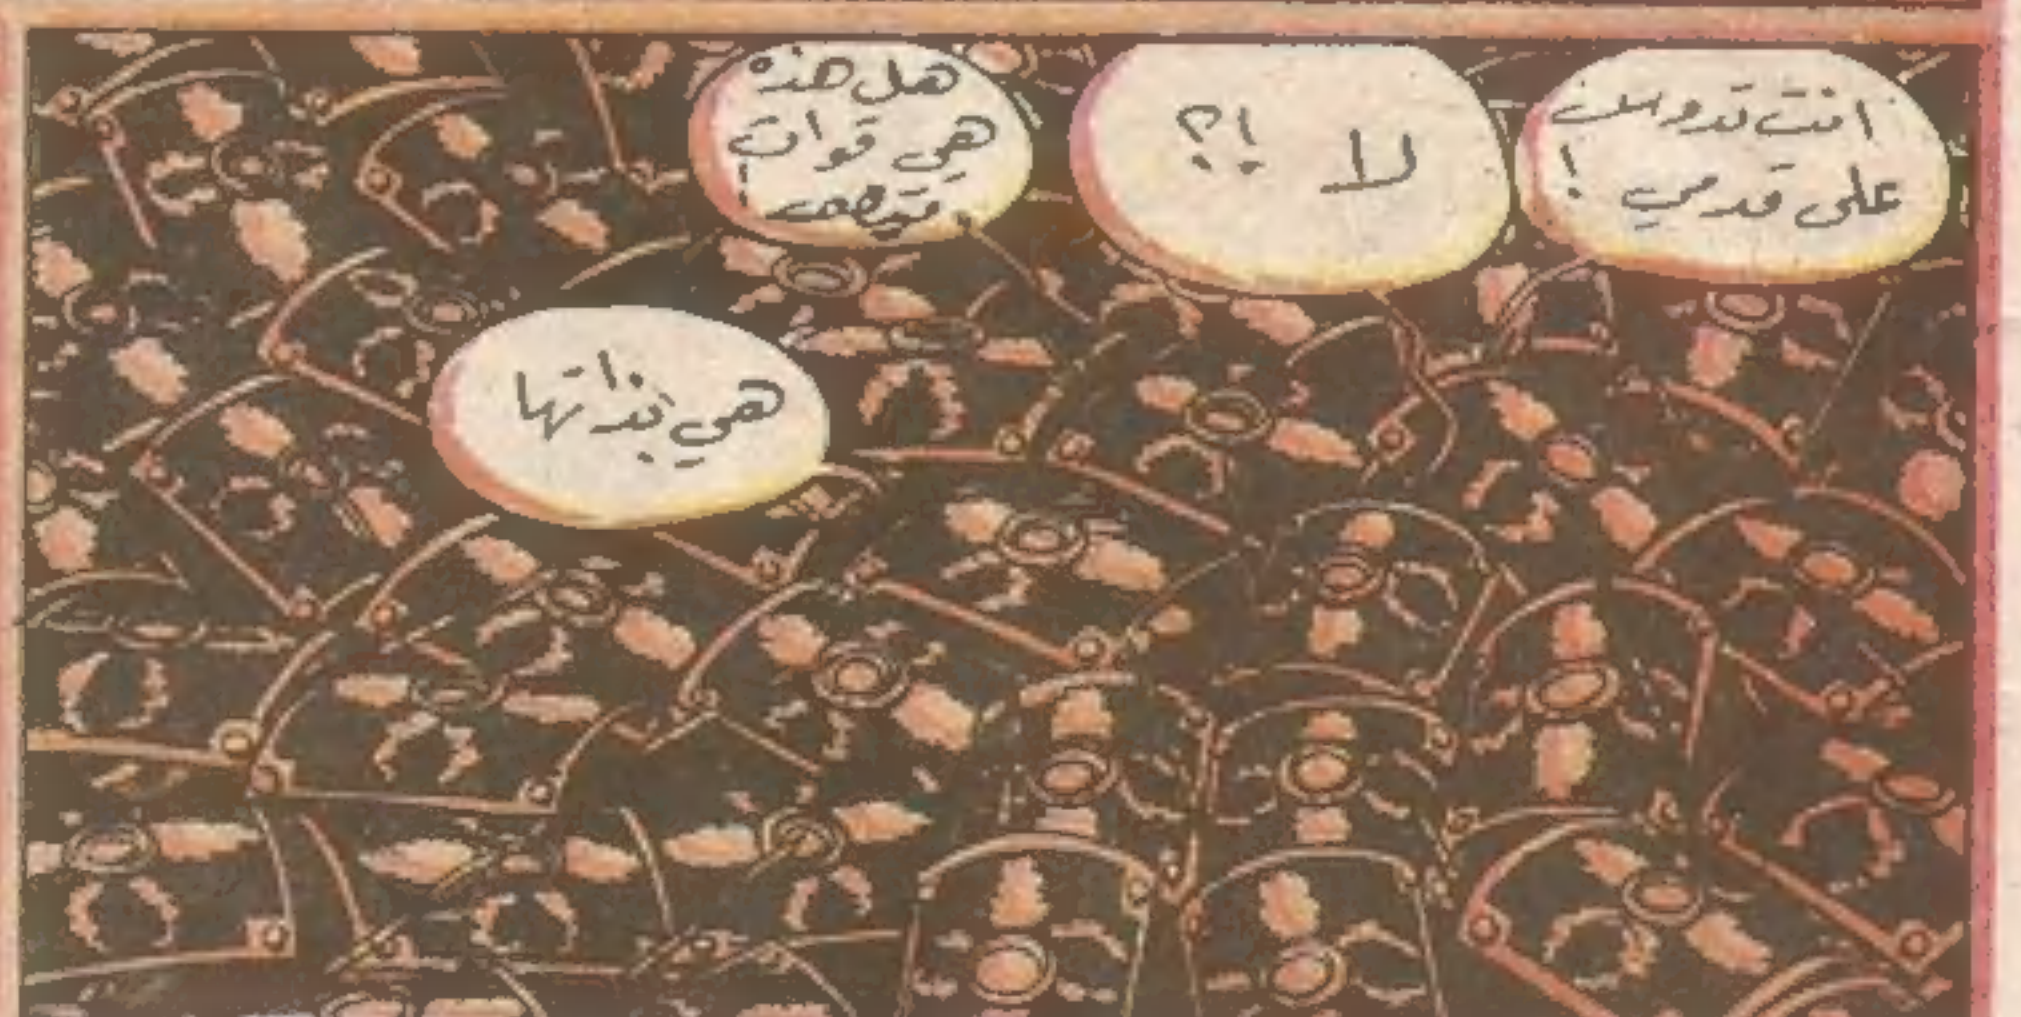 انت تدوس
على قدمي !
لا !؟
هل هذه
هي قوات
قيصر
هي بذاتها